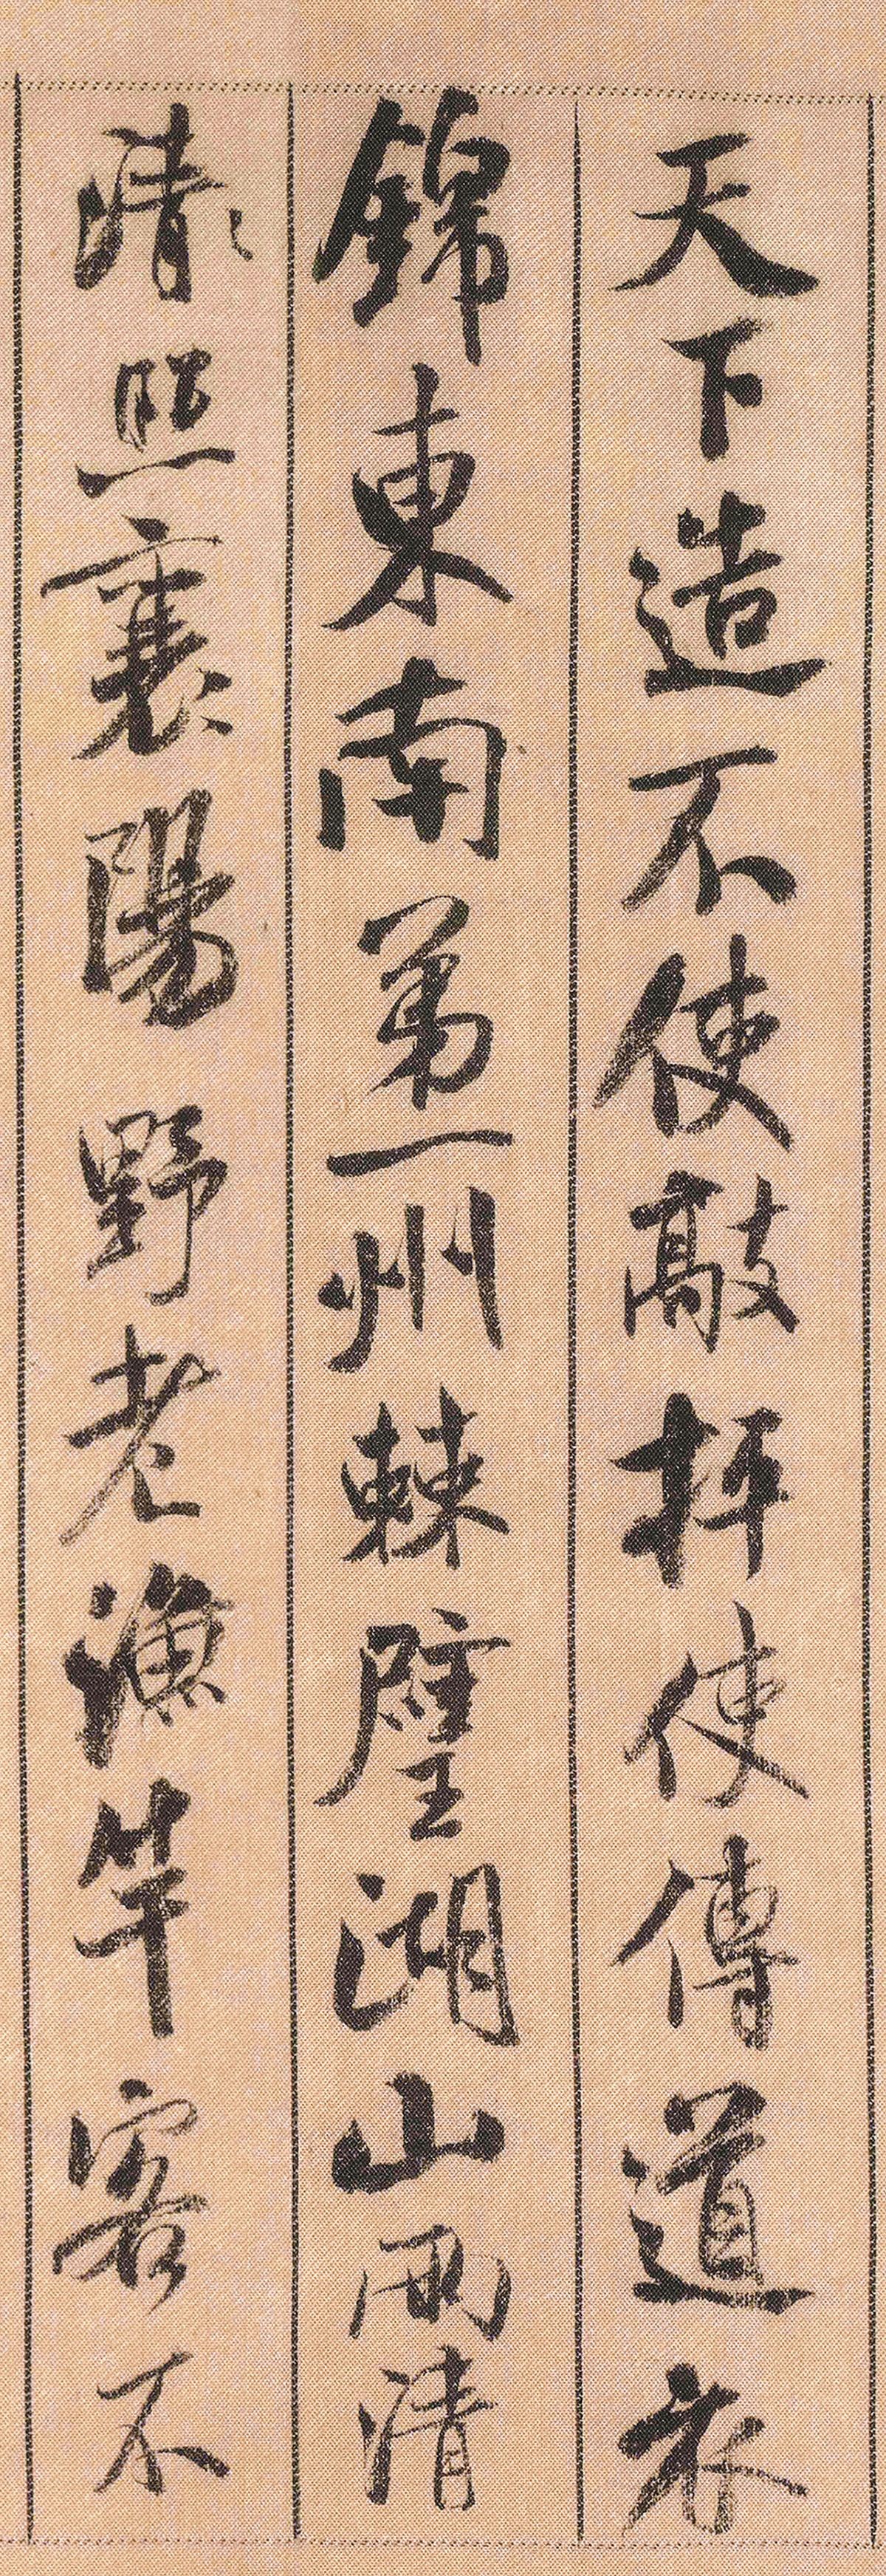 天下造不使敲抨使傳道衣
錦東南第一州棘璧湖山兩清
清照襄陽野老漁竿客不